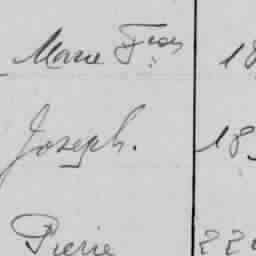 Marie Fran 18
Joseph. 18
Pierre 22